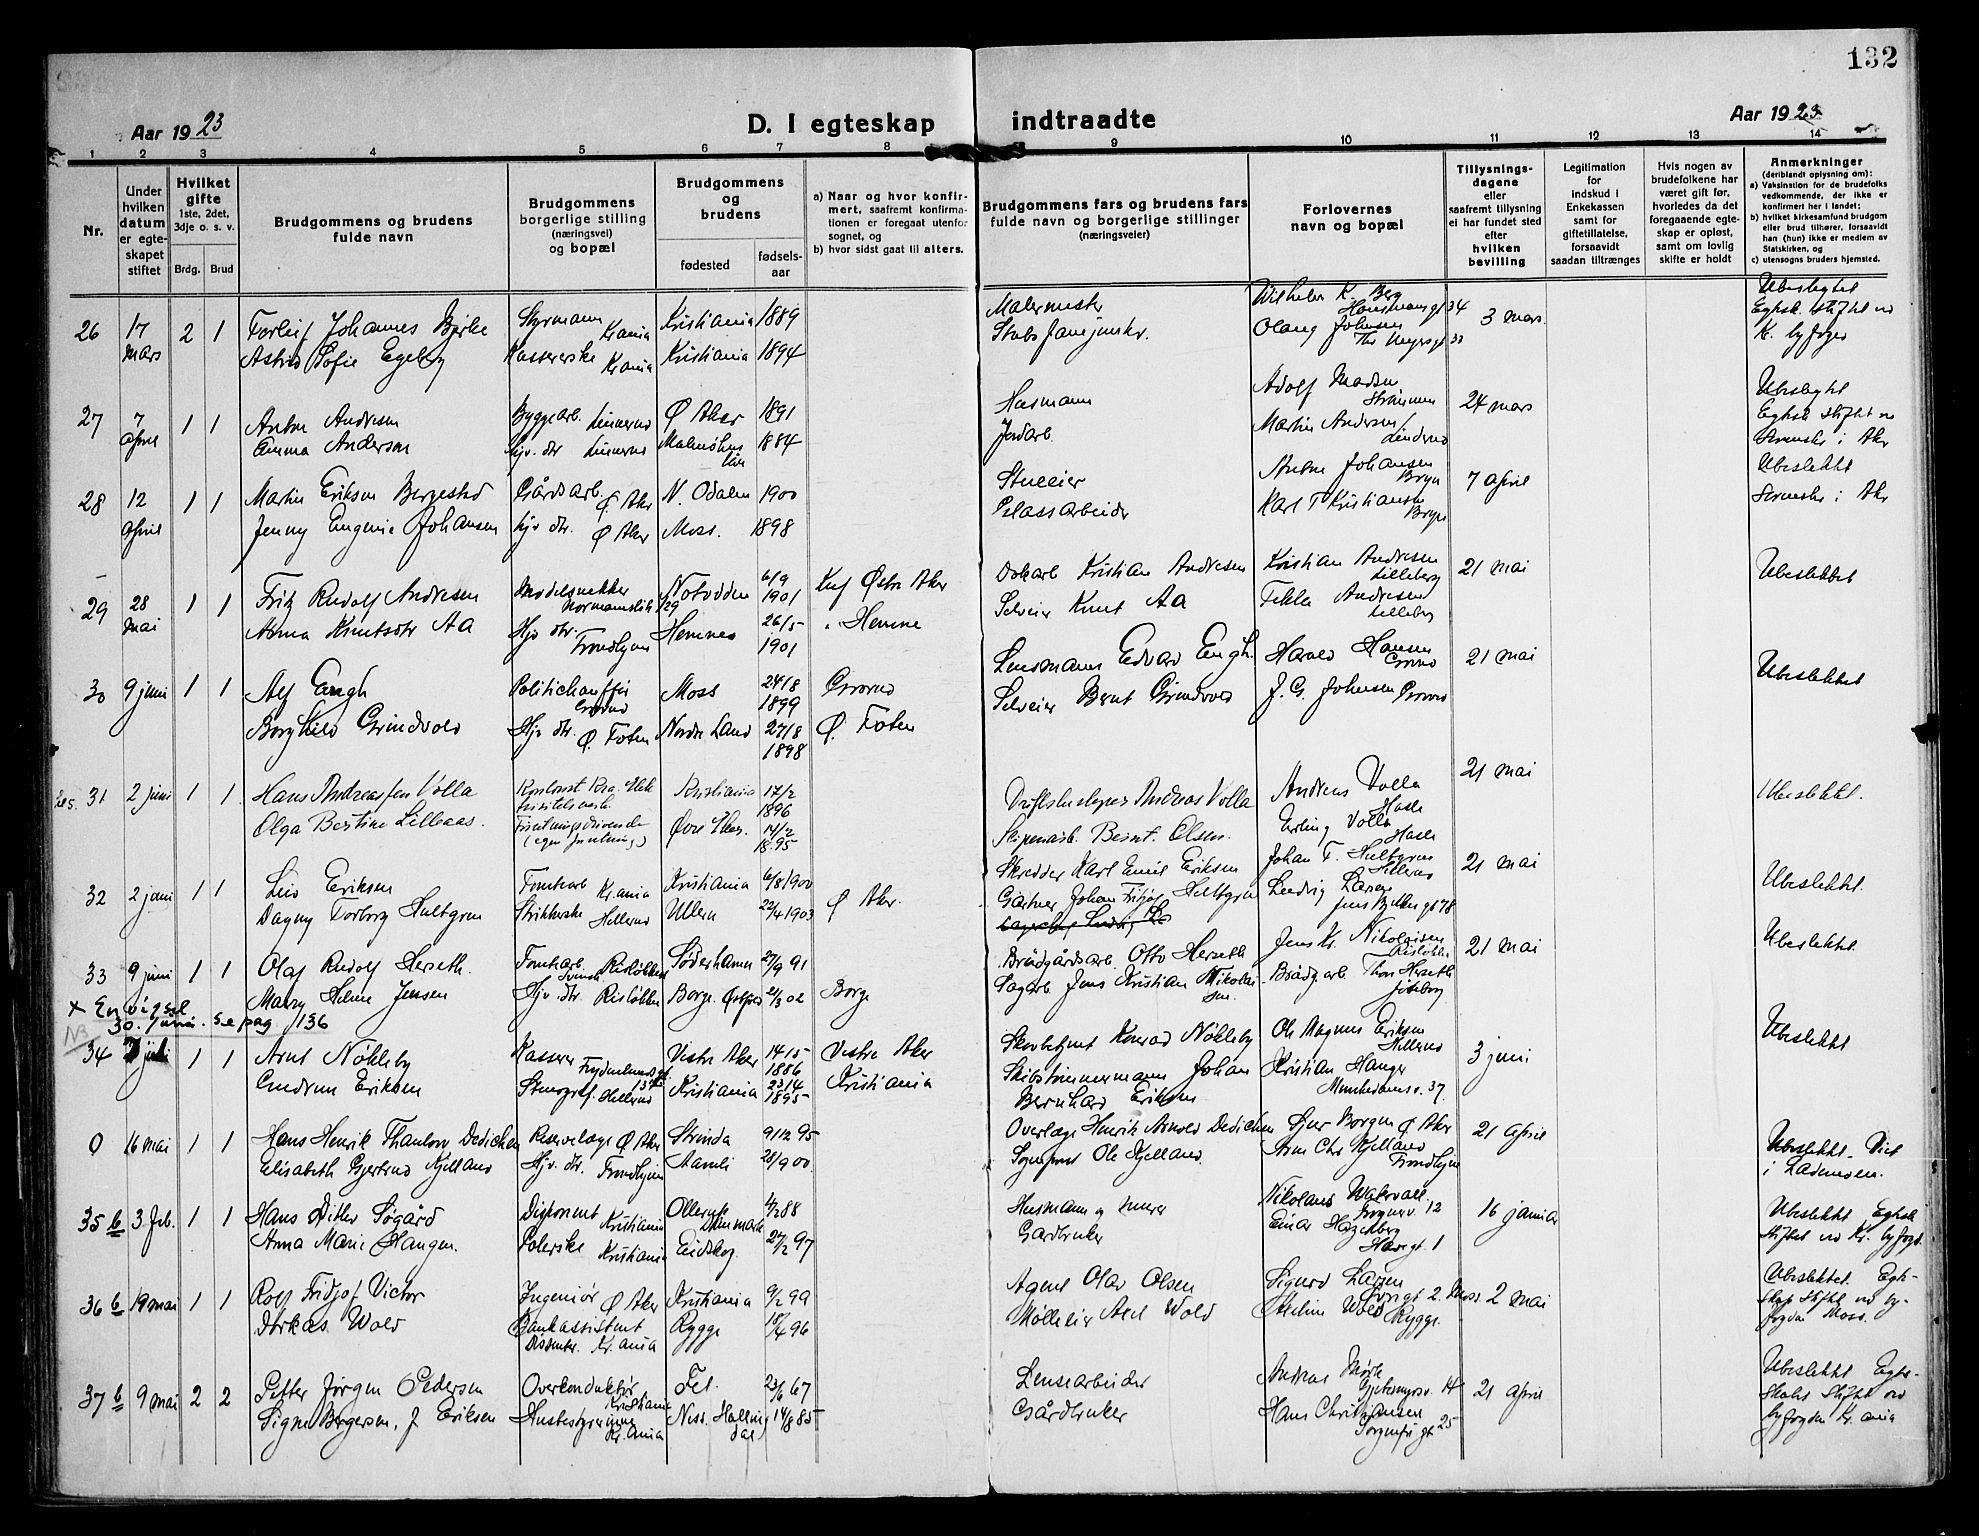 132
Aar 1923
D. I egteskap indtraadte
Aar 1923
1 2 3 4 5 6 7 8 9 10 11 12 13 14
Nr.
Under hvilken datum er egteskapet stiftet
Hvilket gifte
1ste, 2det, 3dje o. s. v.
Brdg. Brud
Brudgommens og brudens fulde navn
Brudgommens borgerlige stilling (næringsvei) og bopæl
Brudgommens og brudens
fødested fødselsaar
a) Naar og hvor konfirmert, saafremt konfirmationen er foregaat utenfor sognet, og
b) hvor sidst gaat til alters.
Brudgommens fars og brudens fars fulde navn og borgerlige stillinger (næringsveier)
Forlovernes navn og bopæl
Tillysningsdagene eller saafremt tillysning ei har fundet sted efter hvilken bevilling
Legitimation for indskud i Enkekassen samt for giftetillatelse, forsaavidt saadan tiltrænges
Hvis nogen av brudefolkene har været gift før, hvorledes da det foregaaende egteskap er opløst, samt om lovlig skifte er holdt
Anmerkninger
(deriblandt oplysning om):
a) Vaksinstion for de brudefolks vedkommende, der ikke er konfirmert her i landet;
b) hvilket kirkesamfund brudgom eller brud tilhører, forsaavidt han (hun) ikke er medlem av Statskirken, og
c) utensogns bruders hjemsted.
26 17 mars 2 1 Torleif Johannes Bjerke Styrmann Krania Kristiania 1889 Malermester Wilhelm K. Berg Hausmansgt 34 3 mars Ubeslegtet
Astrid Sofie Egeby Kassererske Krania Kristiania 1894 Olaug Johnsen Ths Meyersgt 33 Egtsk. stiftet ved K. byfoged
27 7 april 1 1 Anton Andresen Byggearb. Linnerud Ø Aker 1891 Husmann Adolf Madsen Strømmen 24 mars Ubeslegtet
Emma Anderson Hjv. dtr Linnerud Malmøhus län 1884 Jordarb. Martin Andersen Linderud Egtsk stiftet ved Svenske i Aker
28 12 april 1 1 Martin Eriksen Bergestad Gårdsarb. Ø Aker N. Odalen 1900 Stueeier Anton Johansen Bryn 7 april Ubeslektet
Jenny Eugenie Johansen Hjv dtr. Ø Aker Moss. 1898 Plassarbeider Karl T Kristiansen Bryn
29 28 mai 1 1 Fritz Rudolf Andresen Modelsnekker Notodden 6/9 1901 Kuf Østre Aker Kristian Andresen Kristian Andresen Lilleberg 21 mai Ubeslektet
Anna Knutsdtr Aa Hjv dtr. Trondhjem Hemnes 26/5 1901 " Hemne Selveier Knut Aa Tekla Andresen Lilleberg
30 9 juni 1 1 Alf Engh Politichauffør Grorud Moss 24/8 1899 Grorud Lensmann Edvard Engh. Harald Hansen Grorud 21 mai Ubeslektet
Borghild Grindvold Hjv dtr. Ø. Toten Nordre Land 27/8 1898 Ø. Toten Selveier Bernt Grindvold J. G. Johnsen Grorud
31 2 juni 1 1 Hans Andreassen Volla Kristiania 17/2 1896 Driftsbestyrer Andreas Volla Andreas Volla Hasle 21 mai Ubeslektet.
Olga Bertine Lilleaas. Forretningsdrivende (egen forretning) Øvre Eker. 14/2 1895 Bernt. Olsen. Erling Volla Hasle
32 2 juni 1 1 Leif Eriksen Tomtearb. Krania Kristiania 6/8 1900 Skredder Karl Emil Eriksen Johan F. Hultgren Hellerud 21 mai Ubeslektet.
Dagny Torborg Hultgren Strikkerske Hellerud Ullern 22/4 1903 Ø Aker. Gartner Johan Fritjof Hultgren Ludvig Larsen Jens Bjelkes gt 78
33 9 juni 1 1 Olaf Rudolf Herseth. Tomtearb. Risløkken Söderhamn 27/9 91 Brädgårdsarb. Otto Herseth Jens Kr. Nikolaisen Risløkka 21 mai Ubeslektet.
Marry Helene Jensen Hjv. dtr. Risløkken Borge. Østfold 21/3 02 Borge Sagarb. Jens Kristian Nikolaisen. Brädg. arb. Thor Herseth
× En vigsel 30. juni. se pag 136
NB
34 juli 1 1 Arnt Nökleby Kasserer Vestre Aker 14/5 1886 Vestre Aker Konrad Nökleby Ole Magnus Eriksen Hellerud 3 juni Ubeslektet
Gudrun Eriksen Stenograf. Hellerud Kristiania 23/4 1895 Kristiania Skibstømmermann Johan Bernhard Eriksen Kristian Hanger Munkedamsv. 37.
0 16 mai 1 1 Hans Henrik Thaulow Dedichen Reservelæge Ø Aker Strinda 9/12 95 Overlæge Henrik Arnold Dedichen Ejnar Borgen Ø Aker 21 april Ubeslektet. Viet i Lademoen.
Elisabeth Gjertrud Kjelland Hjv. dtr. Trondhjem Aamli 28/9 00 Sogneprest Ole Kjelland Arne Chr Kjelland Trondhjem
35 b 3. feb. 1 1 Hans Ditlev Søgård Disponent Kristiania Ollerup Danmark 4/2 88 Husmann og murer Nikolaus Walsvall 12 16 januar Ubeslektet Egtsk
Anna Marie Haugen. Polerske Kristiania Eidskog. 27/2 97 Gardbruker Einar Hagelberg Havegt 1 stiftet ved Kr. byfogd.
36 b 19 mai 1 1 Rolf Fridjof Victor Ingeniør Ø Aker Kristiania 9/2 99 Agent Olav Olsen Sigurd Larsen 2. Moss 2 mai Ubeslektet. Egteskap stiftet ved byfogden Moss.
Dorkas Wold Bankassistent Dissenter. Kr.ania Rygge 18/4 96 Mølleeier Axel Wold Wold Rygge.
37 b 9 mai 2 2 Petter Jørgen Pedersen Overkonduktør Kristiania Fet. 23/6 67 Lensearbeider Andreas Mørk 14 21 april Ubeslektet Egteskabet stiftet ved byfogden Kr.ania
Signe Borgersen, f. Eriksen Husbestyrerinne Kr.ania Ness. Hallingdal 14/8 85 Gårdbruker Hans Christiansen Sorgenfrigt 25